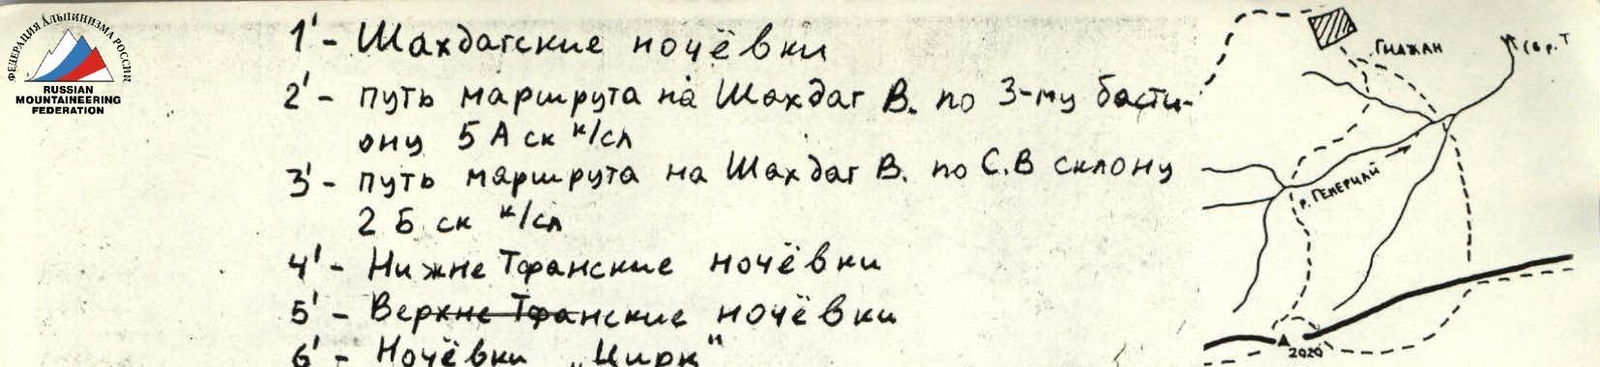 ФЕДЕРАЦИЯ АЛЬПИНИЗМА РОССИИ
RUSSIAN
MOUNTAINEERING
FEDERATION
1' - Шахдагские ночёвки
2' - путь маршрута на Шахдаг В. по 3-му басти-
ону 5 А ск к/сл
3' - путь маршрута на Шахдаг В. по С.В склону
2 Б ск к/сл
4' - Нижне Тфанские ночёвки
5' - Верхне Тфанские ночёвки
6' - Ночёвки „Цирк"
р. ГЕНЕРЧАЙ
2020